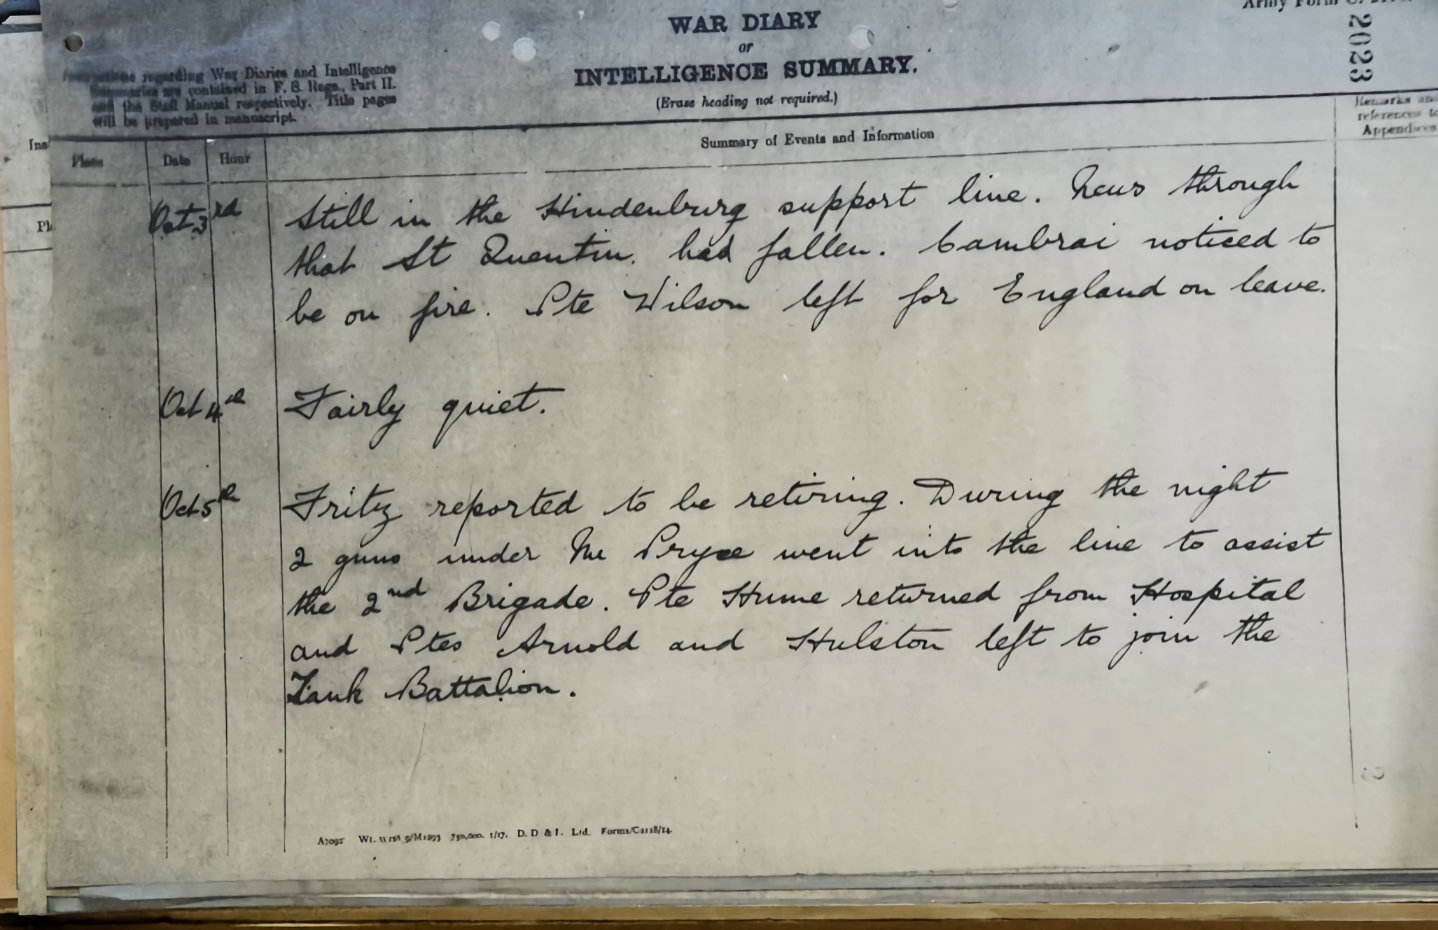 Army Form
2023
WAR DIARY
or
INTELLIGENCE SUMMARY.
(Erase heading not required.)
regarding War Diaries and Intelligence
Summaries are contained in F. S. Regs., Part II.
and the Staff Manual respectively. Title pages
will be prepared in manuscript.
Remarks and
references to
Appendices
Place
Date
Hour
Summary of Events and Information
Oct 3rd
Still in the Hindenburg support line. News through
that St Quentin. had fallen. Cambrai noticed to
be on fire. Pte Wilson left for England on leave.
Oct 4th
Fairly quiet.
Oct 5th
Fritz reported to be retiring. During the night
2 guns under Mr Pryce went into the line to assist
the 2nd Brigade. Pte Hume returned from Hospital
and Ptes Arnold and Hulston left to join the
Tank Battalion.
D. D & L. Ltd. Forms/C2118/14.